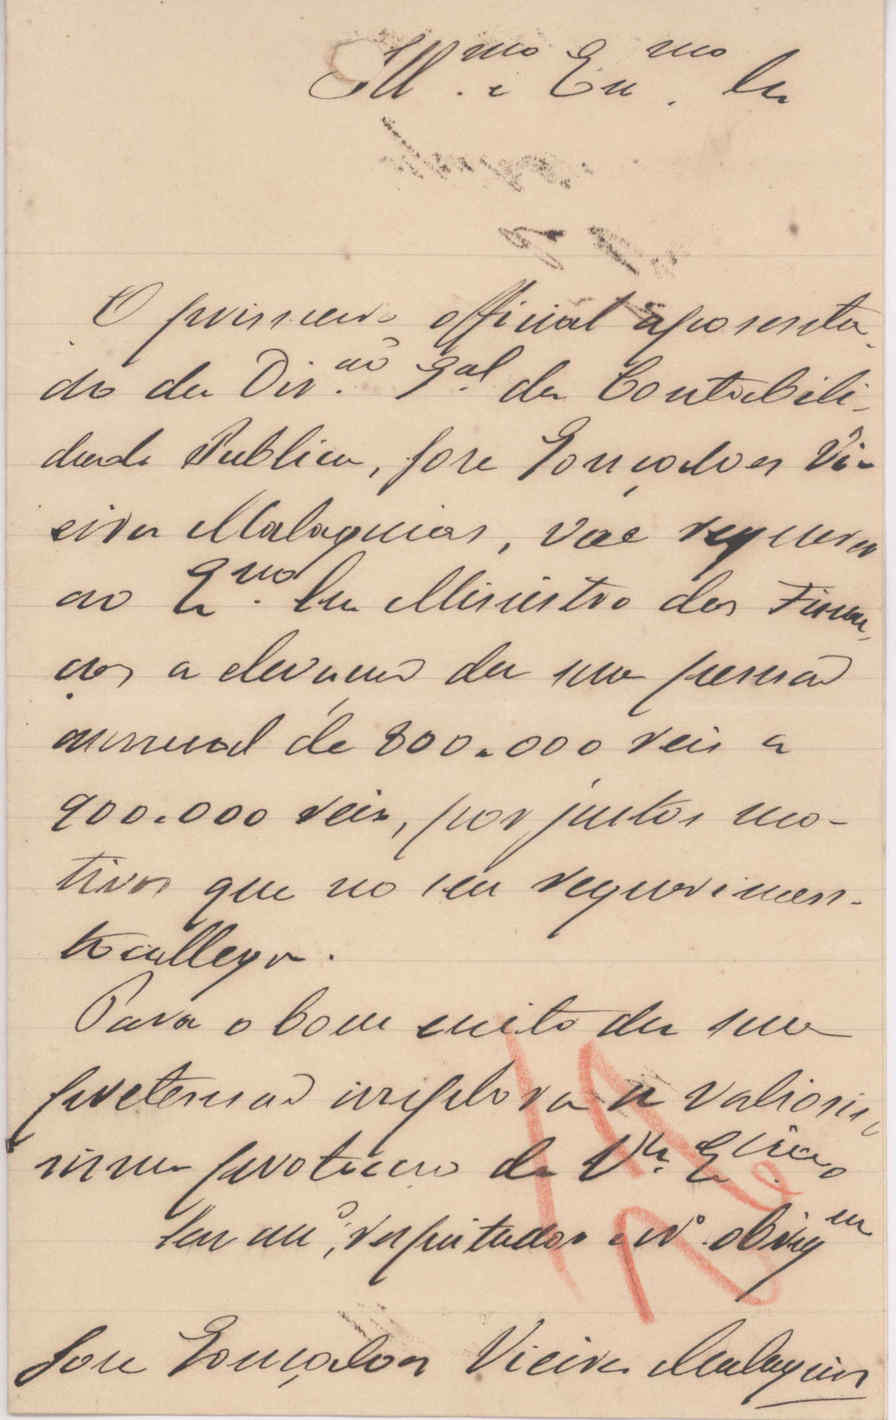 Ill.mo e Exmo. Snr
O primeiro official aposenta-
do da Dir.ão Gal. da Contabili-
dade Publica, José Gonçalves Vi-
eira Malaquias, vae requerer
ao Exmo. Snr Ministro das Finan-
ças a elevação da sua pensão
annual de 800.000 reis a
900.000 reis, por justos mo-
tivos que no seu requerimen-
to allega.
Para o bom exito da sua
pretensão implora a valiosis-
sima protecção de Va. Excia.
respeitador e obrig
José Gonçalves Vieira Malaquias